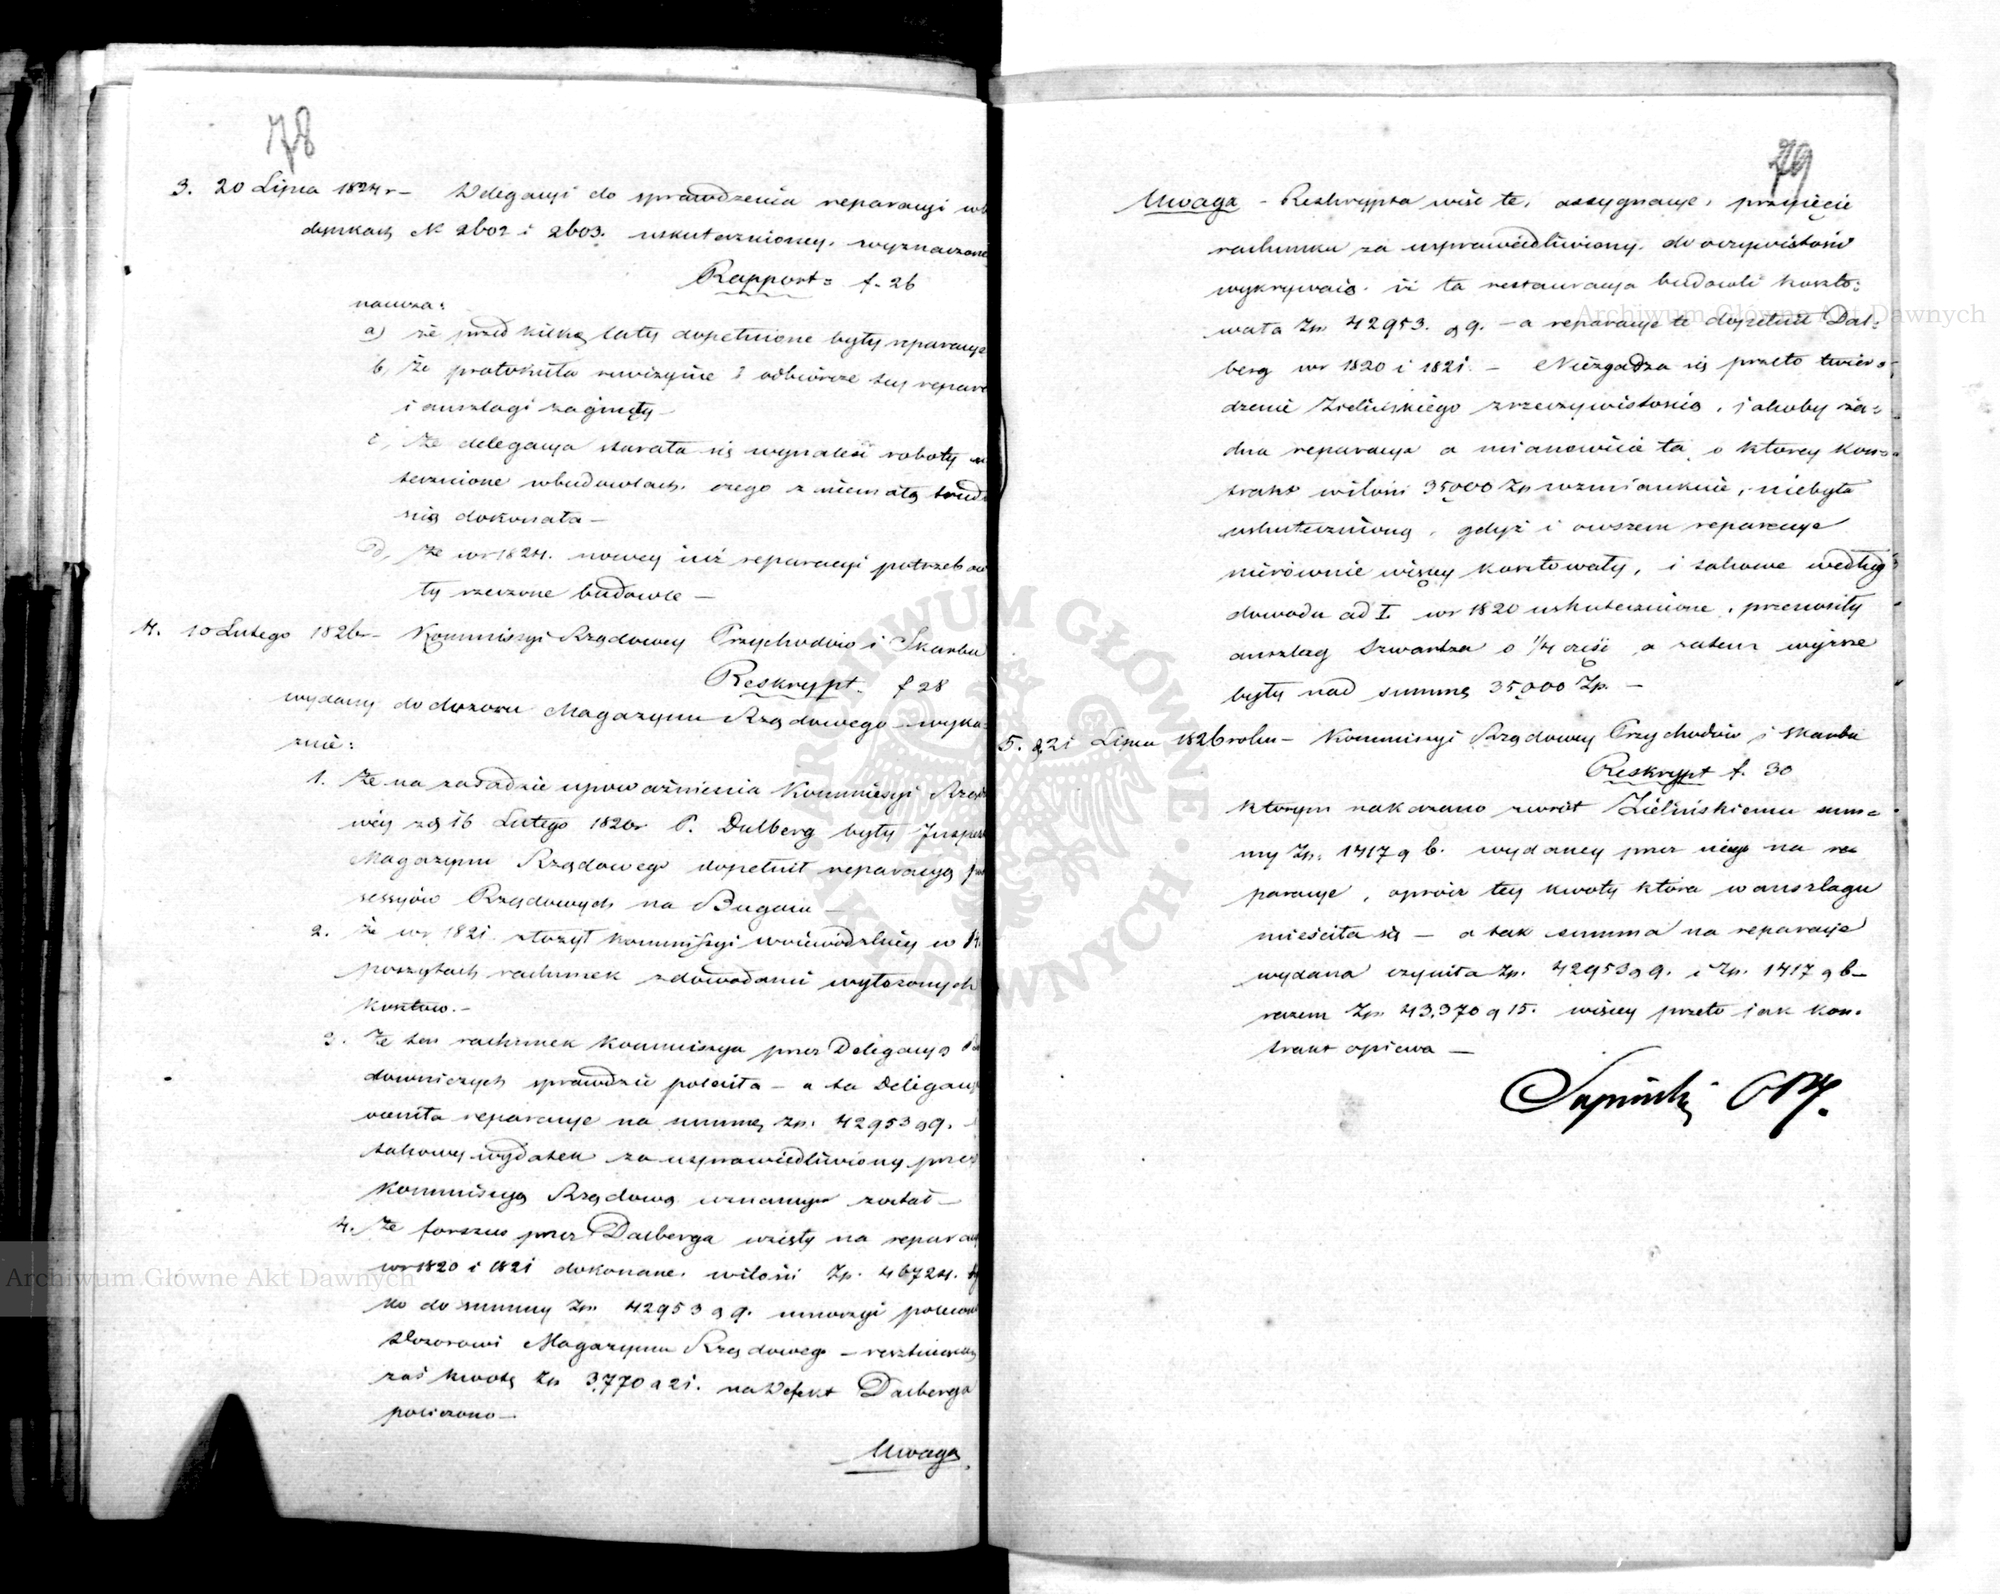 78
3. 20 Lipca 1824 r – Delegacyi do sprawdzenia reparacyi wbu
dynkach N 2602 i 2603. uskutecznioney, wyznaczoney
Rapport = f. 26
naucza:
a) że przed kilką laty dopełnione były reparacye
b, Że protokuła rewizyine i odbiorcze tey repara
i anszlagi zaginęły –
c, Że delegacya starała się wynaleść roboty
tecznione wbudowlach, czego z niemałą trud
nią dokonała –
d, Że wr 1824. nowey iuż reparacyi potrzebowa
ły rzeczone budowle –
4. 10 Lutego 1826 r – Kommissyi Rządowey Przychodów i Skarbu
Reskrypt. f 28
wydany do dozoru Magazynu Rządowego wyka=
zuie:
1. Że na zasadzie upoważnienia Kommissyi Rządo
wéy z d 16 Lutego 1820 r P. Dalberg były Inspek
Magazynu Rządowego dopełnił reparacyą pos
sessyów Rządowych na Bugaiu –
2. Że wr 1821. złożył Kommissyi woiewódzkiey w
poszytach rachunek z dowodami wyłożonych
kosztów. –
3. Że ten rachunek Kommissya przez Delegacyą Bu
downiczych sprawdzić poleciła – a ta Delegacya
oceniła reparacye na summę Zp. 42953 g 9. –
takowy wydatek za usprawiedliwiony przez
Kommissyą Rządową uznanym został –
4. Że forszus przez Dalberga wzięty na reparacye
wr 1820 i 1821 dokonane, wilości Zp. 46724. tyl
ko do summy Zp. 42953 g 9. umorzyi polecono
Dozorowi Magazynu Rządowego – resztuiącą
zaś kwotę Zp 3,770 g 21. na Defekt Dalberga
policzono –
Uwaga
79
Uwaga – Reskrypta więc te, assygnacye, przyięcie
rachunku za usprawiedliwiony, do oczywistości
wykrywaią, iż ta restauracya budowli koszto=
wała Zp. 42953. g 9. – a reparacye te dopełnił Dal=
berg wr 1820 i 1821. – Niezgadza się przeto twier=
dzenie Zielińskiego z rzeczywistością, jakoby ża=
dna reparacya a mianowicie ta, o którey kon=
trakt wilości 35,000 Zp wzmiankuie, niebyła
uskutecznioną, gdyż i owszem reparacye
nierównie więcey kosztowały, i takowe według
dowodu ad I. wr 1820 uskutecznione, przenosiły
anszlag Szwartza o 1/4 część, a zatem wyższe
były nad summę 35,000 Zp. –
5. d 21 Lipca 1826 roku – Kommissyi Rządowey Przychodów i Skarbu
Reskrypt f. 30
którym nakazano zwrót Zielińskiemu sum=
my Zp. 1417 g 6. wydaney przez niego na re
paracye, oprócz tey kwoty która w anszlagu
mieściła się – a tak summa na reparacye
wydana czyniła Zp. 42953 g 9. i Zp. 1417 g 6 –
razem Zp. 43,370 g 15. więcey przeto jak kon=
trakt opiewa –
Archiwum Główne Akt Dawnych
Archiwum Główne Akt Dawnych
ARCHIWUM GŁÓWNE AKT DAWNYCH